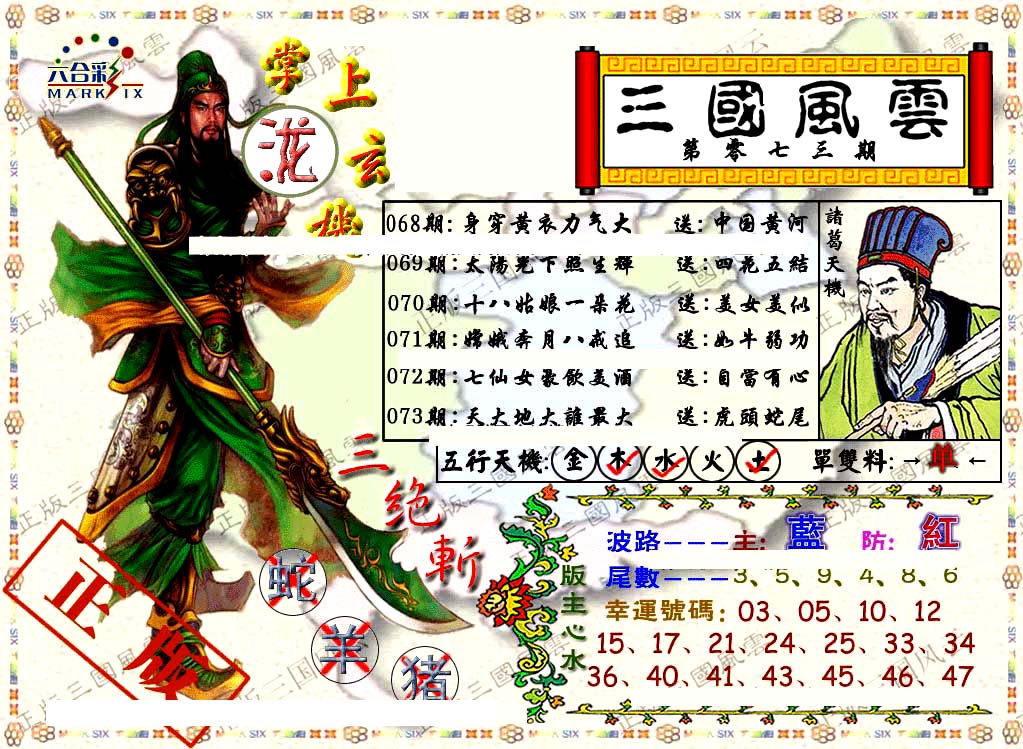 六合彩
MARK SIX
掌上玄機
泷
三國風雲
第零七三期
068期:身穿黄衣力气大 送:中国黄河
069期:太陽光下照生輝 送:四花五結
070期:十八姑娘一朵花 送:美女美似
071期:嫦娥奔月八戒追 送:如牛弱功
072期:七仙女聚飲美酒 送:自當有心
073期:天大地大誰最大 送:虎頭蛇尾
諸葛天機
五行天機:金木水火土 單雙料:→单←
三絕斬
蛇
羊
猪
正版
版主心水
波路---主:藍 防:紅
尾數---3、5、9、4、8、6
幸運號碼:03、05、10、12
15、17、21、24、25、33、34
36、40、41、43、45、46、47